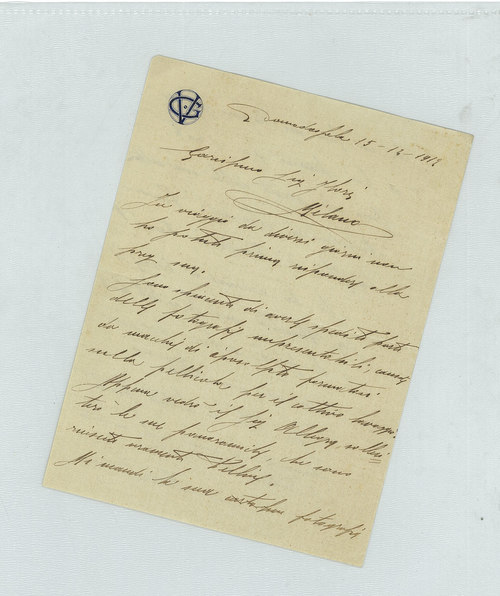 Domodossola 15-12-1912
Carissimo Sig. Flori
Milano
In viaggio da diversi giorni non
ho potuto prima rispondere alla
preg. sua.
Sono spiacente di averle spedito parte
delle fotografie impresentabili, causa
da macchie di
nella pellicola per il cattivo lavaggio.
Appena vedrò il Sig. solleci
terò le sue panoramiche che sono
riuscite veramente belline.
Mi mandi le sue fotografie